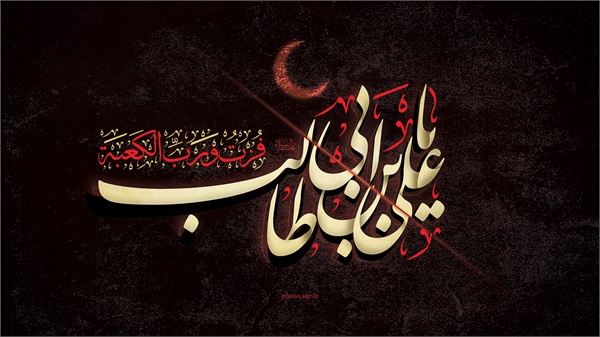 یا علی بن ابی طالب
فُزتُ وَ رَبِّ الکَعبَة
photo.aqr.ir